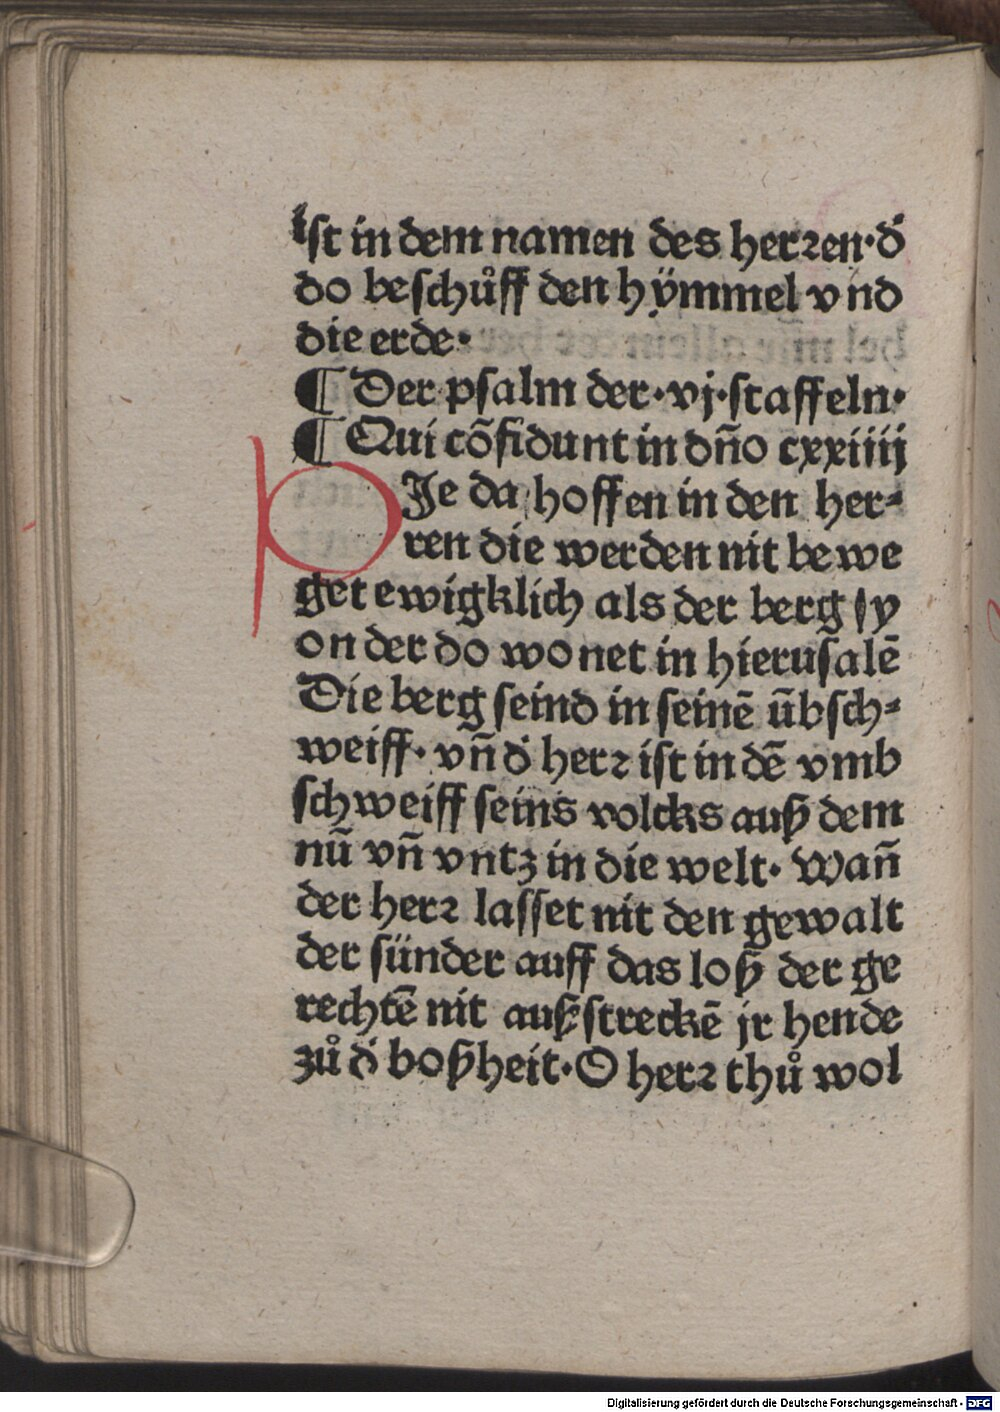 ist in dem namen des herꝛen·d̓
do beschůff den hÿmmel vnd
die erde·
¶ Der psalm der·vj·staffeln·
¶ Qui cōfidunt in dn̄o cxxiiij
DJe da hoffen in den her⸗
ren die werden nit bewe
get ewigklich als der berg sy
on der do wonet in hierusalē
Die berg seind in seinē ūbsch⸗
weiff· vn̄ d̓ herꝛ ist in dē vmb
schweiff seins volcks auß dem
nū vn̄ vntz in die welt· Wan̄
der herꝛ lasset nit den gewalt
der sünder auff das loß der ge
rechtē nit außstreckē jr hende
zů d̓ boßheit·O herꝛ thů wol
Digitalisierung gefördert durch die Deutsche Forschungsgemeinschaft - DFG